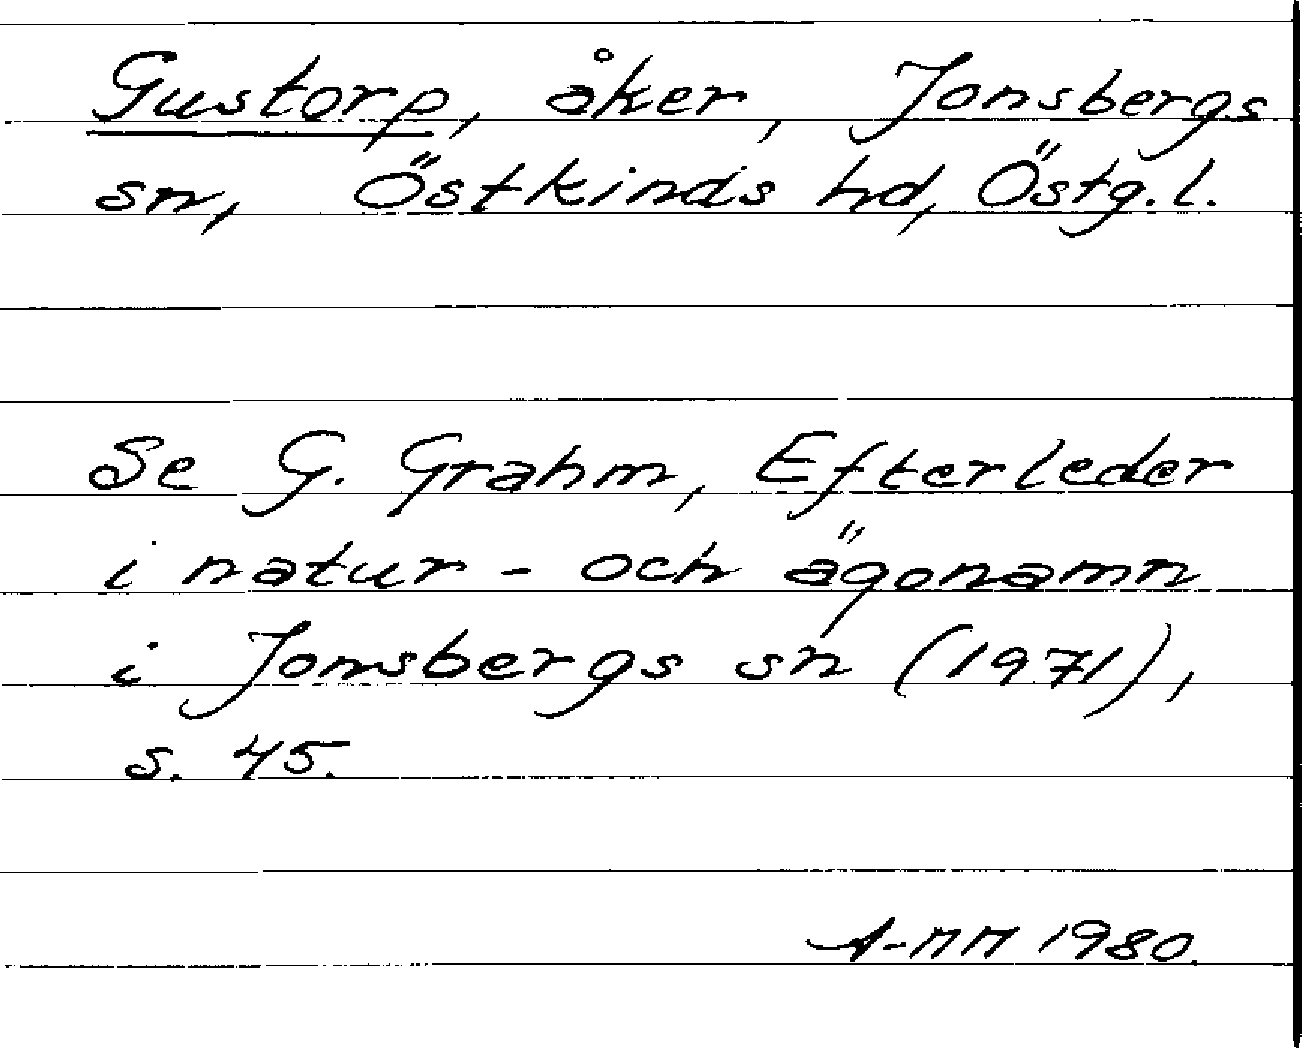 Gustorp, åker, Jonsbergs
sn, Östkinds hd, Östg.l.
Se G. Grahm, Efterleder
i natur- och ägonamn
i Jonsbergs sn (1971),
s. 45.
A-MM 1980.